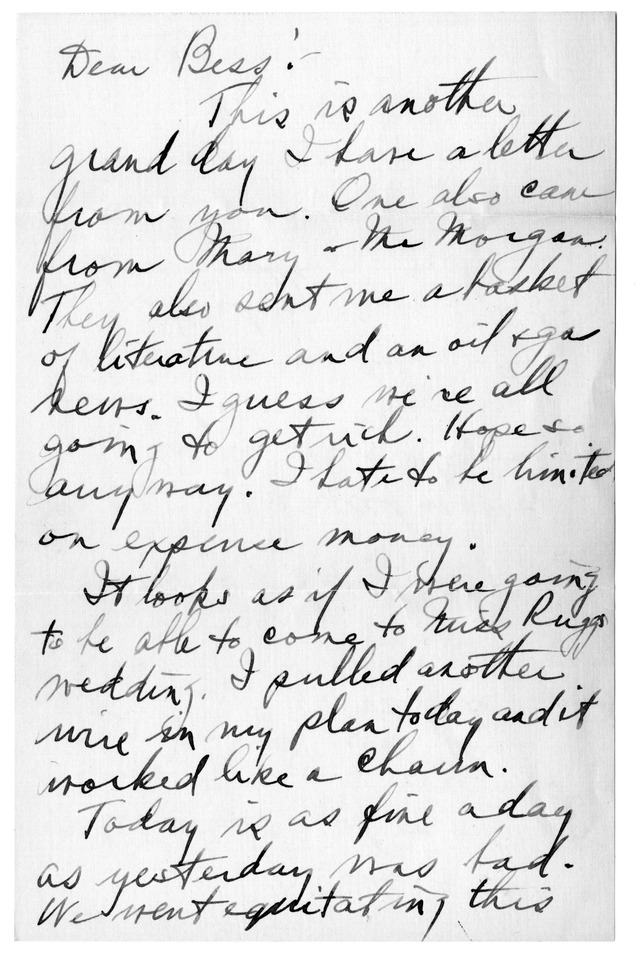 Dear Bess:-
This is another
grand day I have a letter
from you. One also came
from Mary & Mr Morgan.
They also sent me a basket
of literature and an oil & ga
news. I guess we're all
going to get rich. Hope so
anyway. I hate to be limited
on expense money.
It looks as if I were going
to be able to come to Miss Ruggs
wedding. I pulled another
wire in my plan today and it
worked like a charm.
Today is as fine a day
as yesterday was bad.
We went equitating this